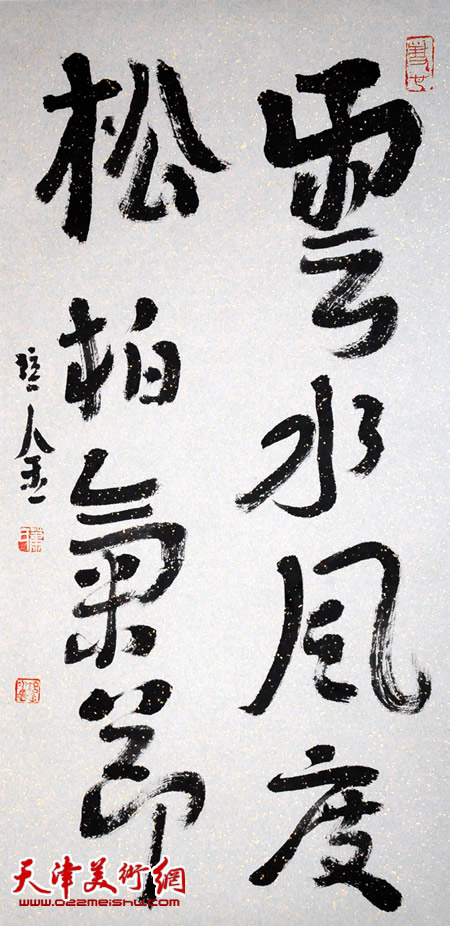 雲水風度
松柏氣節
培金
天津美術網
www.022meishu.com